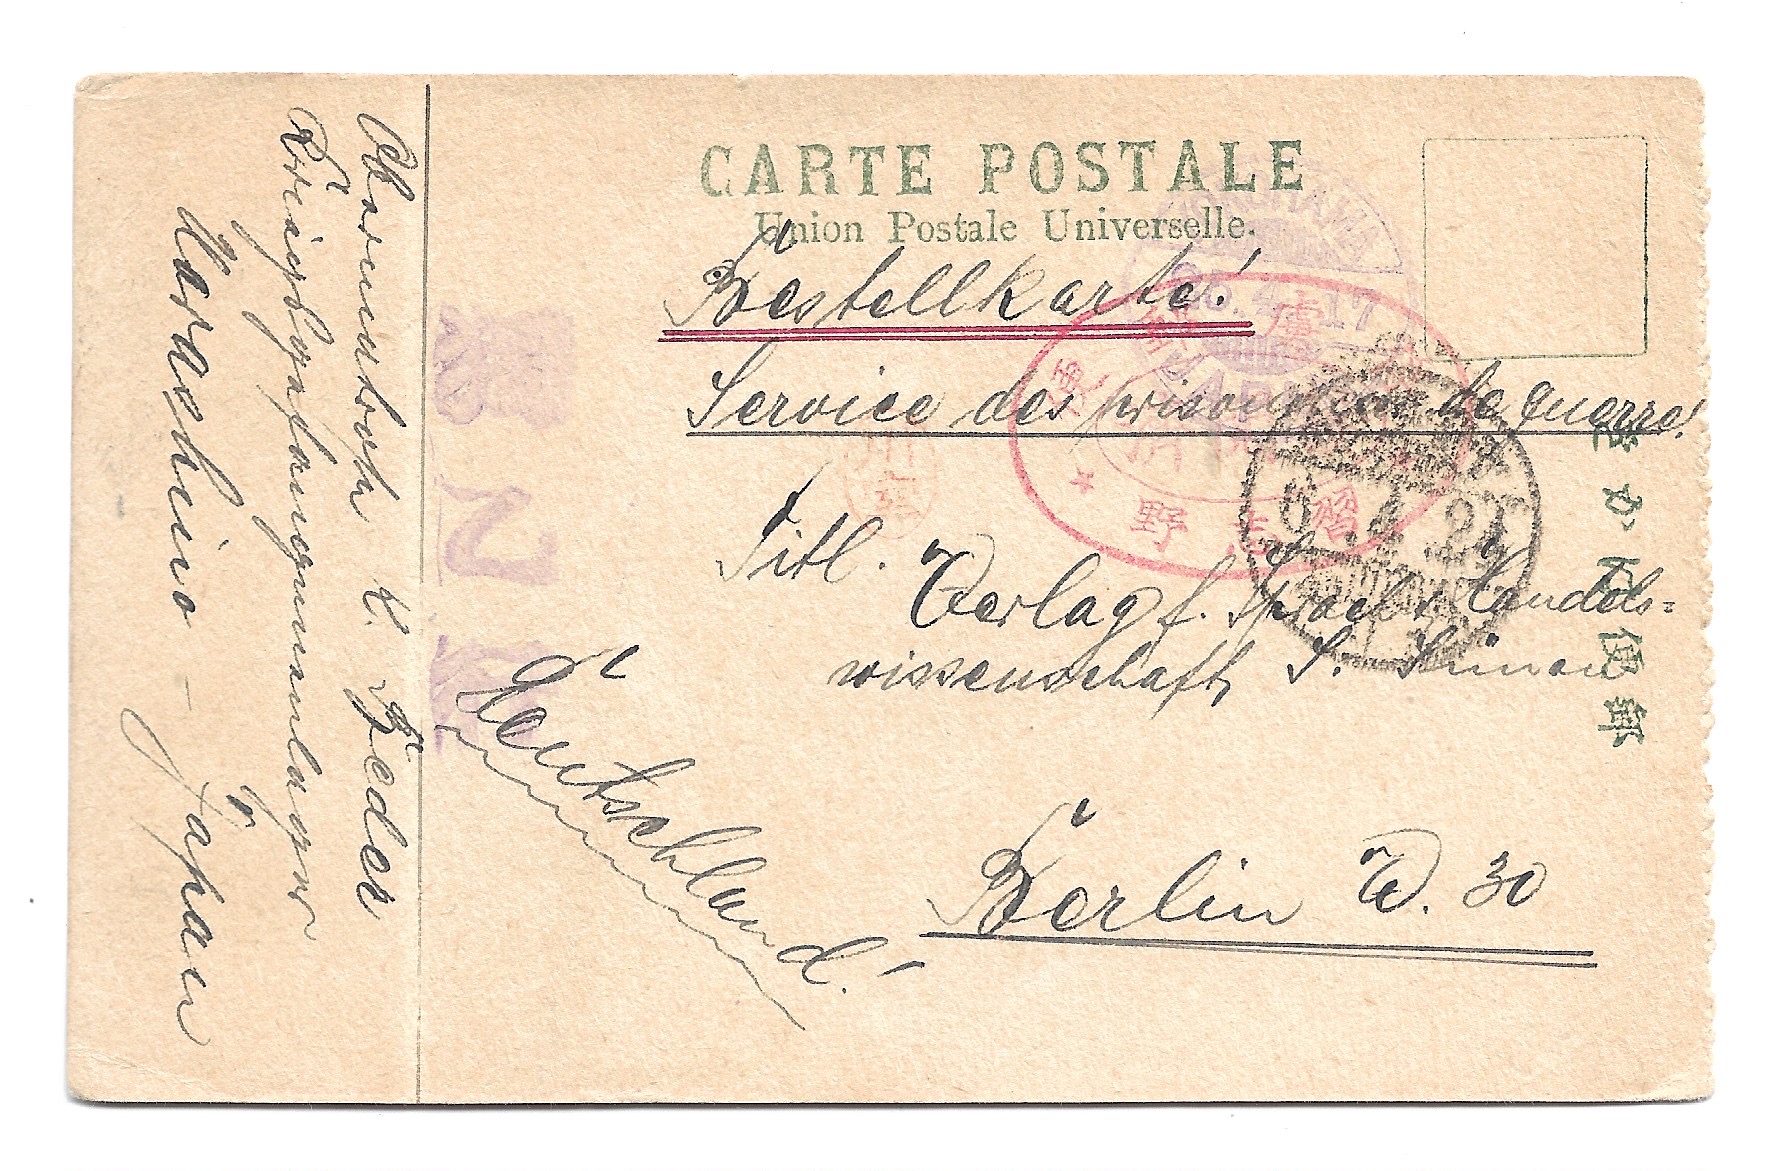 CARTE POSTALE
Union Postale Universelle.
Bestellkarte!
Service des prisonniers de guerre!
Titl. Verlag f. Sprach & Handels=
wissenschaft, S. Simon
Berlin W. 30
Deutschland!
K. Feder
Kriegsgefangenenlager
Narashino - Japan
YOKOHAMA
25.4.17
JAPAN
習志野
6.4.21
便郵